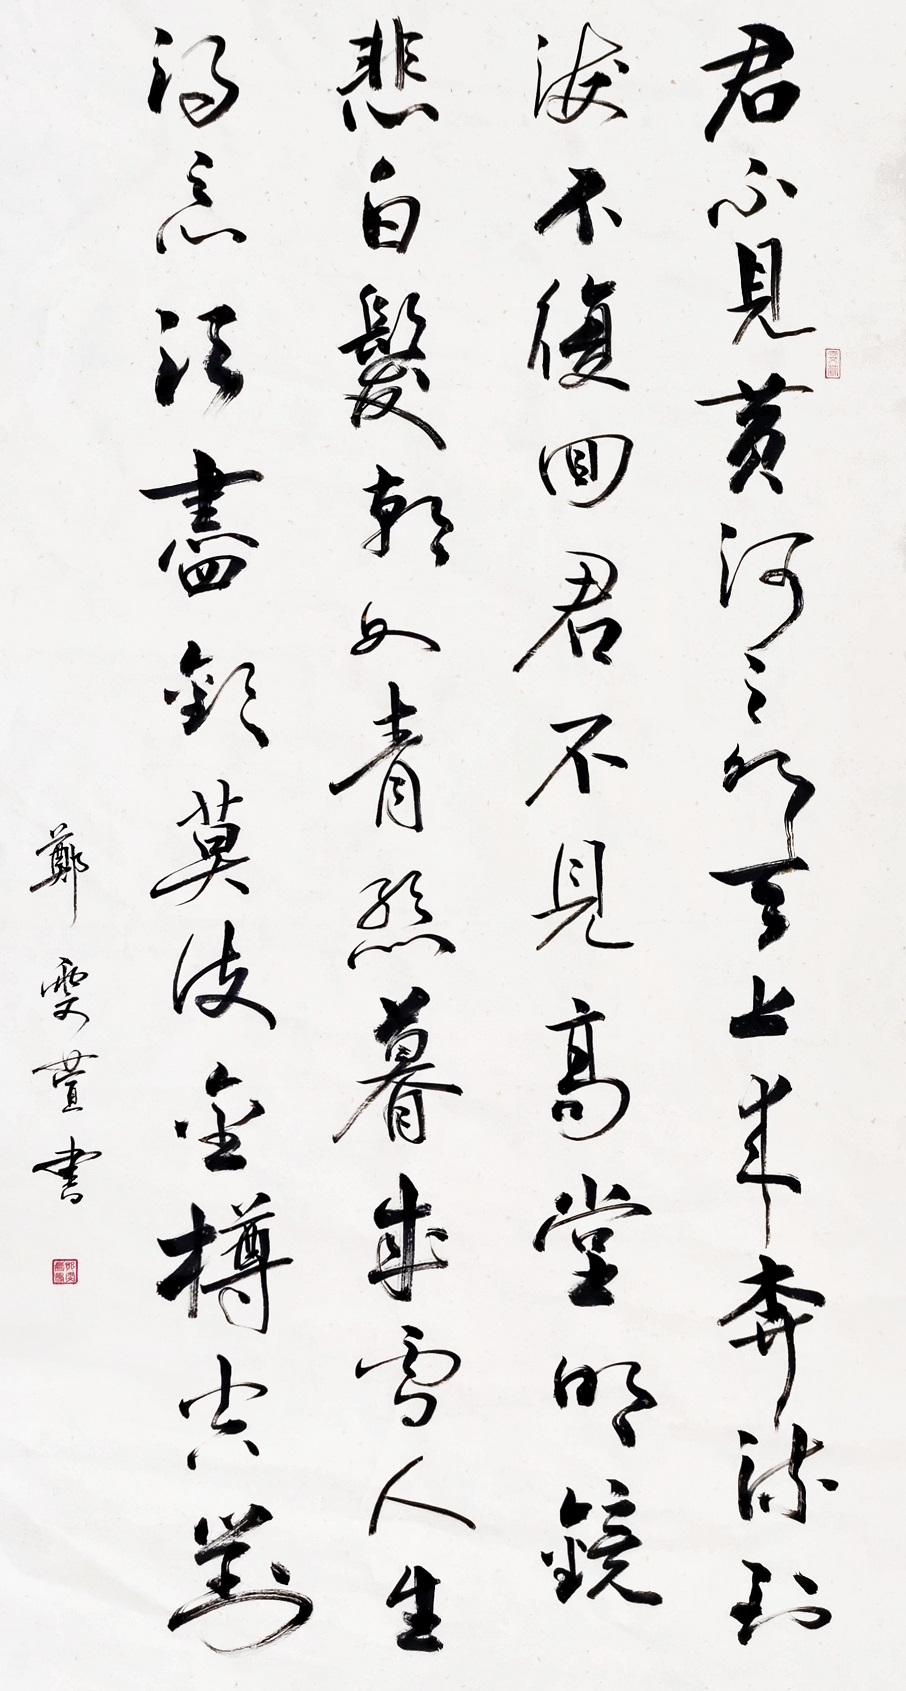 君不見黃河之水天上來奔流到
海不復回君不見高堂明鏡
悲白髮朝如青絲暮成雪人生
得意須盡歡莫使金樽空對
鄭雯萱書